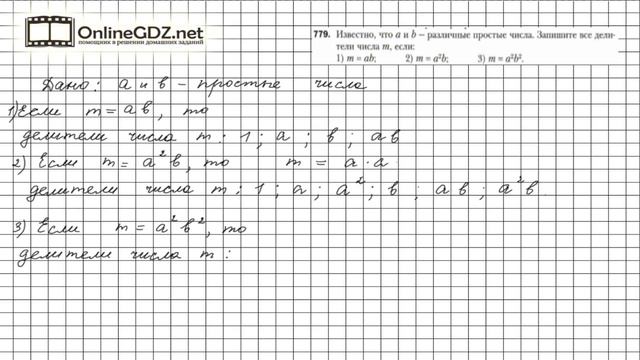 OnlineGDZ.net
помощник в решении домашних заданий
779. Известно, что a и b – различные простые числа. Запишите все дели-
тели числа m, если:
1) m = ab; 2) m = a²b; 3) m = a²b².
Дано: a и b – простые числа
1) Если m = ab, то
делители числа m: 1; a; b; ab
2) Если m = a²b, то m = a·a
делители числа m: 1; a; a²; b; ab; a²b
3) Если m = a²b², то
делители числа m: